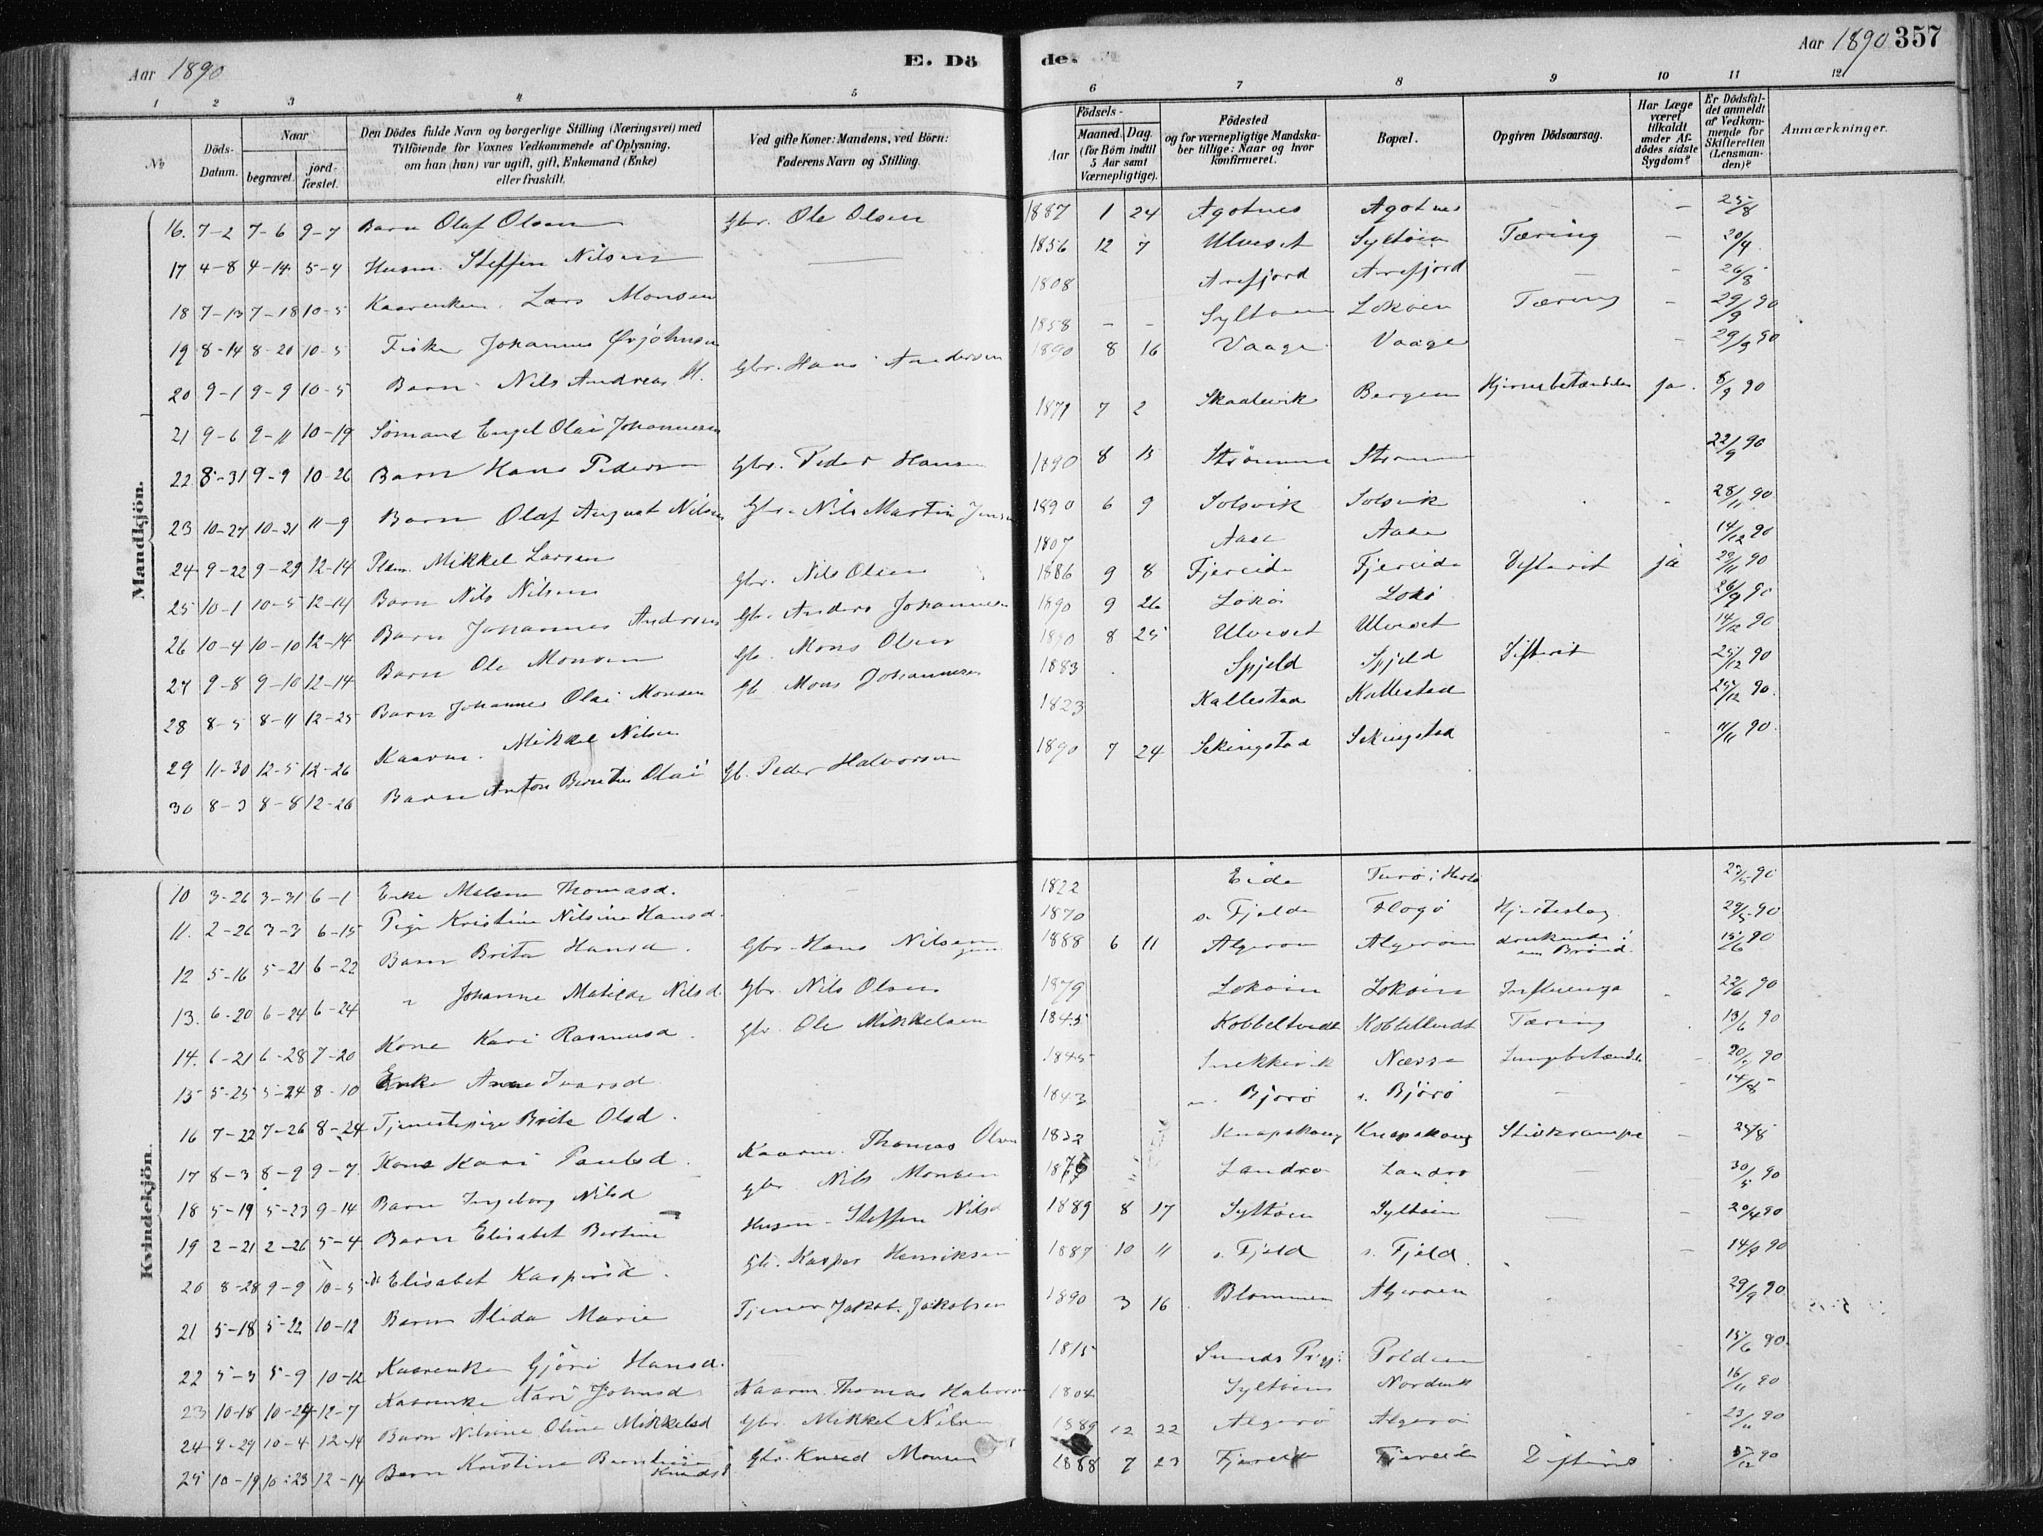 Aar 1890 E. Dö de. Aar 1890 357
1 2 3 4 5 6 7 8 9 10 11 12
No
Döds-Datum.
Naar
begravet.
jord-fæstet.
Den Dödes fulde Navn og borgerlige Stilling (Næringsvei) med
Tilföiende for Voxnes Vedkommende af Oplysning,
om han (hun) var ugift, gift, Enkemand (Enke)
eller fraskilt.
Ved gifte Koner: Mandens, ved Börn:
Faderens Navn og Stilling.
Födsels-
Aar
Maaned. Dag.
(for Börn indtil
5 Aar samt
Værnepligtige).
Födested
og for værnepligtige Mandska-
ber tillige: Naar og hvor
konfirmeret.
Bopæl.
Opgiven Dödsaarsag.
Har Læge
været
tilkaldt
under Af-
dödes sidste
Sygdom?
Er Dödsfal-
det anmeldt
af Vedkom-
mende for
Skifteretten
(Lensman-
den)?
Anmærkninger.
Mandkjön.
16. 7-2 7-6 9-7 Barn Olaf Olsen Gbr. Ole Olsen 1887 1 24 Agotnes Agotnes - - 25/8
17 4-8 4-14 5-4 Husm. Steffen Nilsen 1856 12 7 Ulveset Syltöen Tæring - 20/4
18 7-13 7-18 10-5 Kaarenkem. Lars Monsen 1808 Arefjord Arefjord - 26/8
19 8-14 8-20 10-5 Fisker Johannes Øvjohnsen 1858 - - Syltöen Lokøen Tæring - 29/9 90
20 9-1 9-9 10-5 Barn Nils Andreas H. Gbr. Hans Andersen 1890 8 16 Vaage Vaage - 29/9 90
21 9-6 9-11 10-19 Sømand Engel Olai Johannesen 1871 7 2 Skaalevik Bergen Hjernebetændelse ja. 8/9 90
22 8-31 9-9 10-26 Barn Hans Pedersen Gbr. Peder Hansen 1890 8 15 Strömme Strömme 22/9 90
23 10-27 10-31 11-9 Barn Olaf August Nilsen Gbr. Nils Martin Jensen 1890 6 9 Solsvik Solsvik 28/11 90
24 9-22 9-29 12-14 Mikkel Larsen 1807 Aase Aase 14/12 90
25 10-1 10-5 12-14 Barn Nils Nilsen Gbr. Nils Olsen 1886 9 8 Fjereide Fjereide Difterit ja 29/11 90
26 10-4 10-10 12-14 Barn Johannes Andersen Gbr. Anders Johannesen 1890 9 26 Lokö Lokö 26/9 90
27 9-8 9-10 12-14 Barn Ole Monsen Gb. Mons Olsen 1890 8 25 Ulveset Ulveset 14/12 90
28 8-5 8-11 12-25 Barn Johannes Olai Monsen Gb. Mons Johannesen 1883 Spjeld Spjeld Difterit 25/12 90
29 11-30 12-5 12-26 Kaarm. Mikkel Nilsen 1823 Kallestad Kallestad 25/12 90.
30 8-3 8-8 12-26 Barn Anton Berntin Olai Gb. Peder Halvorsen 1890 7 24 Sekingstad Sekingstad 11/11 90.
Kvindekjön.
10 3-26 3-31 6-1 Enke Malene Thomasd. 1822 Eide Turö i Herlö 23/5 90
11. 2-26 3-3 6-15 Pige Kristine Nilsine Hansd. 1870 s. Fjelde Flogö Hjerteslag 29/5 90
12 5-16 5-21 6-22 Barn Brita Hansd. Gbr. Hans Nilsen 1888 6 11 Algeröen Algeröen druknede i en Brönd. 15/6 90
13. 6-20 6-24 6-24 " Johanne Matilde Nilsd. Gbr. Nils Olsen 1879 Lokøen Lokøen Influenza 22/6 90
14. 6-21 6-28 7-20 Kone Kari Rasmusd. Gbr. Ole Mikkelsen 1845 Kobbeltvedt Kobbeltvedt Tæring 13/6 90
15 5-25 5-24 8-10 Enke Anne Ivarsd. 1845 Snekkevik Næsse Lungebetændelse 20/7 90
16 7-22 7-26 8-24 Tjenestepige Brite Olsd. 1843 n. Bjorö n. Bjorö - 14/8
17 8-3 8-9 9-7. Kone Kari Paulsd. Kaarm. Thomas Olsen 1832 Knapskoug Knapskoug Stivkrampe - 25/8
18 5-19 5-23 9-14 Barn Ingeborg Nilsd Gbr. Nils Monsen 1876 " Landro Landro - 30/5 90
19 2-21 2-26 5-4 Barn Elisabet Bertine Husm. Steffen Nilsd 1889 8 17 Syltöen Syltöen - 20/4 90
20 8-28 9-9 10-5 Elisabet Kaspersd. Gb. Kasper Henriksen 1887 10 11 s. Fjeld s. Fjeld. 14/9 90
21 5-18 5-22 10-12 Barn Alida Marie Tjener Jakob Jakobsen 1890 3 16 Blommen Algeröen 29/9 90
22 5-3 5-9 10-12 Kaarenke Gjöri Hansd. 1815 Sunds Prgj. Polden 15/6 90.
23 10-18 10-24 12-7 Kaarenke Kari Johnsd Kaarm. Thomas Halvorsen 1804 Syltöen Nordvik 16/11 90
24 9-29 10-4 12-14 Barn Nilsine Oline Mikkelsd Gbr. Mikkel Nilsen 1889 12 22 Algerö Algerö 23/11 90
25 10-19 10-23 12-14 Barn Kristine Berntine Knudsd Gbr. Knud Monsen 1888 7 23 Fjereide Fjereide Difterit 5/12 90